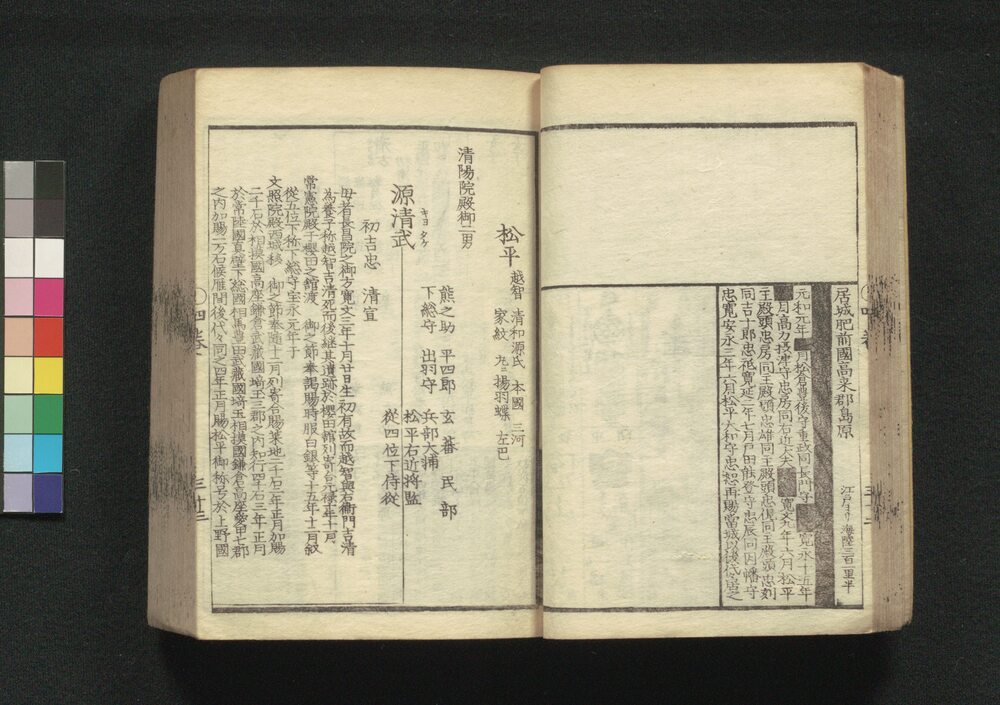 居城肥前國高來郡島原
江戸ヨリ海陸三百二里半
元和元年 月松倉豊後守重政同長門守 寛永十五年
月高力摂津守忠房同右近大夫 寛文九年六月松平
主殿頭忠房同主殿頭忠雄同主殿頭忠俔同主殿頭忠刻
同吉十郎忠祗寛延二年七月戸田能登守忠辰同因幡守
忠寛安永三年六月松平大和守忠恕再賜當城以後代々居之
松平
越智 清和源氏 本國 三河
家紋 丸ニ揚羽蝶 左巴
清陽院殿御二男
源清武
キヨ タケ
熊之助 平四郎 玄蕃 民部
下総守 出羽守 兵部大輔
松平右近将監
從四位下侍從
初吉忠 清宣
母者長昌院之御方寛文三年十月廿日生初有故而越智與右衛門吉清
為養子称越智吉清死而後継其遺跡於櫻田館列寄合元禄 年十月
常憲院殿于櫻田之館渡 御之節奉謁賜時服白銀等十五年十二月叙
從五位下称下総守宝永元年于
文照院殿西城移 御之節奉随十二月列寄合賜菜地二千石二年正月加賜
二千石於相摸國高座鎌倉武藏國埼玉三郡之内知行四千石三年正月
於常陸國真壁下総國相馬豊田武藏國埼玉相摸國鎌倉高座愛甲七郡
之内加賜一万石候雁間後代々同之四年正月賜松平御称号於上野國
四巻
三廿三